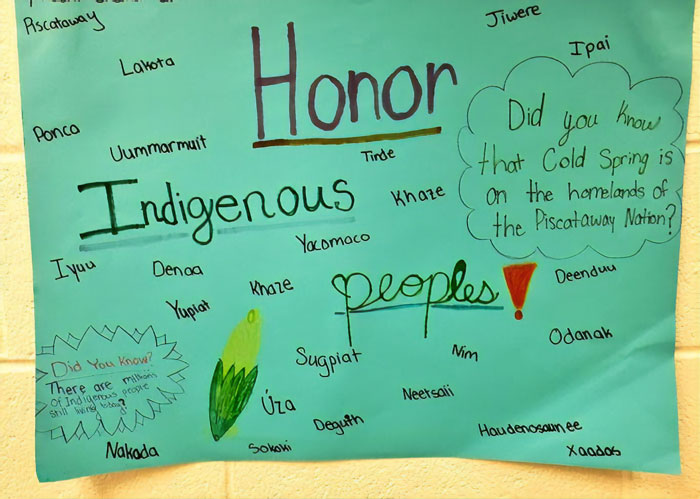 Piscataway
Jiwere
Lakota
Honor
Ipai
Ponca
Uummarmuit
Tinde
Did you know
that Cold Spring is
on the homelands of
the Piscataway Nation?
Indigenous
Khaze
Yacomaco
Iyuu
Denaa
Yupiat
Khaze
peoples!
Deenduu
Odanak
Did You Know?
There are millions
of Indigenous people
still living today?
Sugpiat
Nim
Úza
Deguth
Neetsaii
Haudenosaunee
Xaadas
Nakada
Sokoki